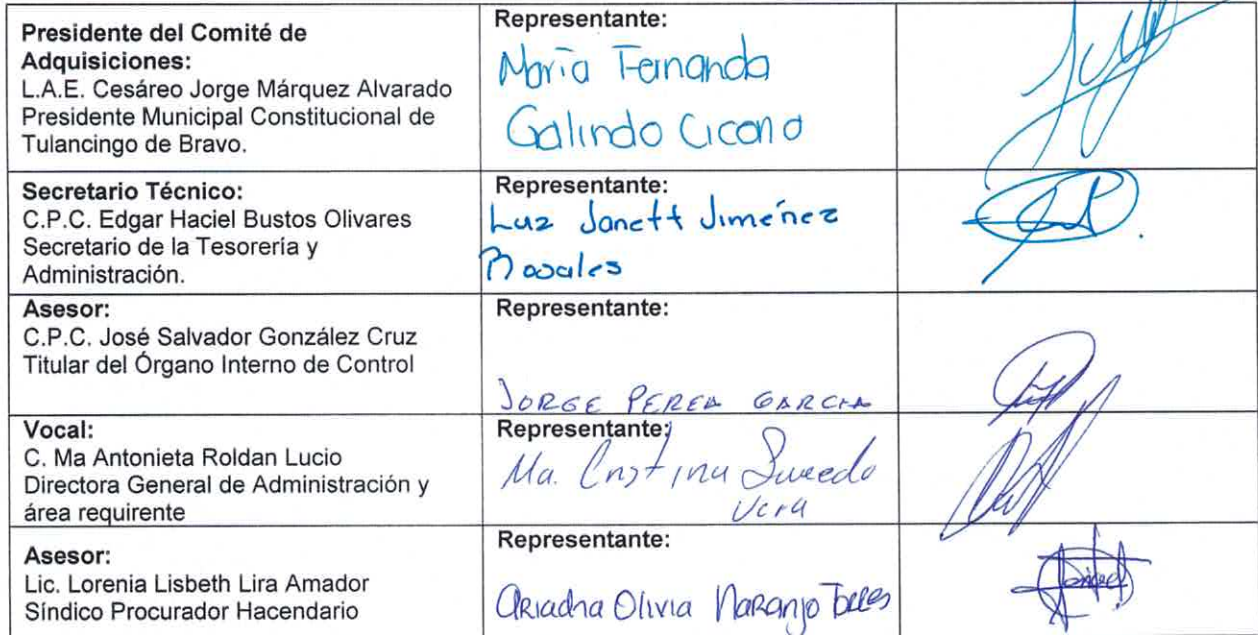 Presidente del Comité de
Adquisiciones:
L.A.E. Cesáreo Jorge Márquez Alvarado
Presidente Municipal Constitucional de
Tulancingo de Bravo.
Representante:
María Fernanda
Galindo Cicano
Secretario Técnico:
C.P.C. Edgar Haciel Bustos Olivares
Secretario de la Tesorería y
Administración.
Representante:
Luz Janett Jiménez
Rosales
Asesor:
C.P.C. José Salvador González Cruz
Titular del Órgano Interno de Control
Representante:
JORGE PEREA GARCIA
Vocal:
C. Ma Antonieta Roldan Lucio
Directora General de Administración y
área requirente
Representante:
Ma. Cristina
Vera
Asesor:
Lic. Lorenia Lisbeth Lira Amador
Síndico Procurador Hacendario
Representante:
Ariadna Olivia Naranjo Torres